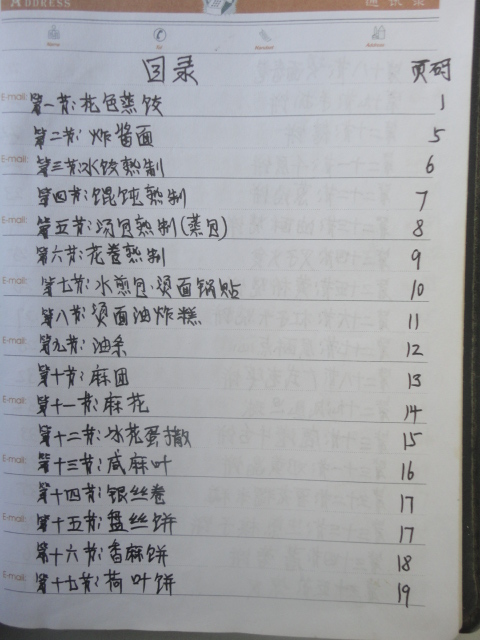 ADDRESS 通讯录
Name Tel Number Address
目录 页码
E-mail: 第一节:花色蒸饺 1
第二节:炸酱面 5
E-mail: 第三节:水饺熟制 6
第四节:馄饨熟制 7
E-mail: 第五节:汤包熟制(蒸包) 8
第六节:花卷熟制 9
E-mail: 第七节:水煎包·烫面锅贴 10
第八节:烫面油炸糕 11
E-mail: 第九节:油条 12
第十节:麻团 13
E-mail: 第十一节:麻花 14
第十二节:冰花蛋撒 15
E-mail: 第十三节:咸麻叶 16
第十四节:银丝卷 17
E-mail: 第十五节:盘丝饼 17
第十六节:香麻饼 18
E-mail: 第十七节:荷叶饼 19